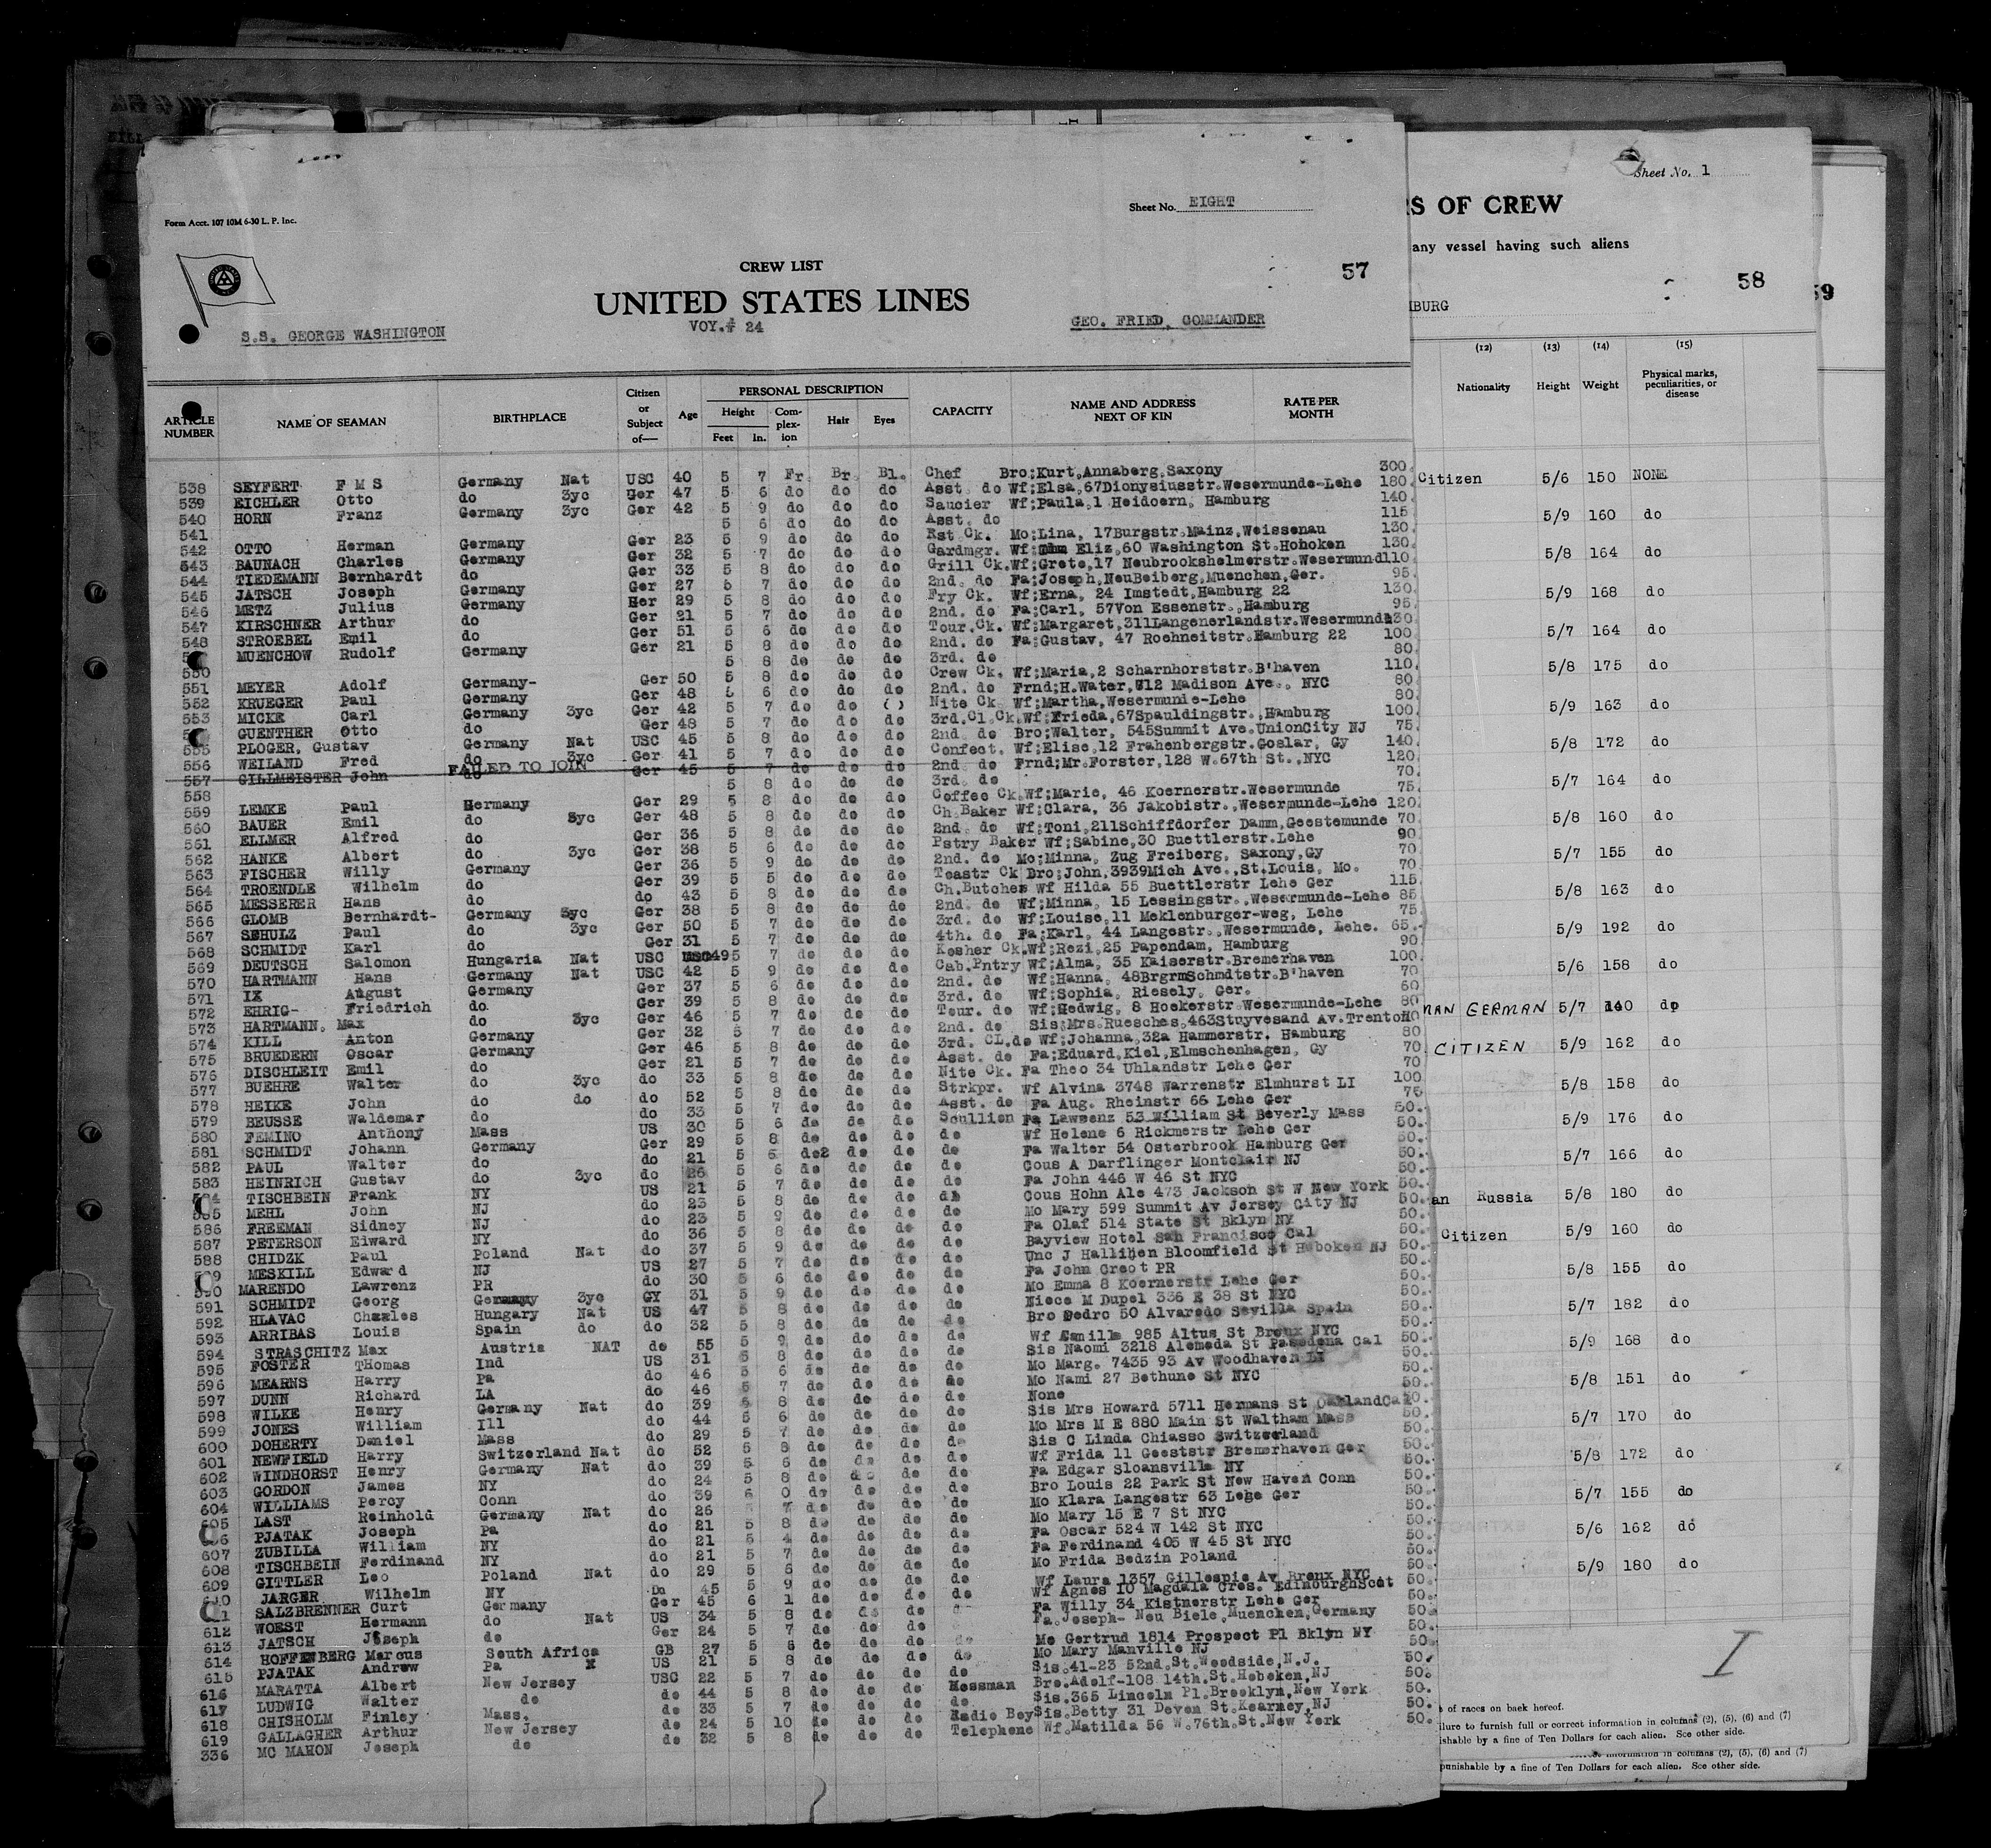 Form Acct. 107 10M 6-30 L. P. Inc.
Sheet No. EIGHT
CREW LIST
57
UNITED STATES LINES
VOY.# 24
S.S. GEORGE WASHINGTON
GEO. FRIED, COMMANDER
ARTICLE NUMBER NAME OF SEAMAN BIRTHPLACE Citizen or Subject of— Age PERSONAL DESCRIPTION Height Feet In. Com-plex-ion Hair Eyes CAPACITY NAME AND ADDRESS NEXT OF KIN RATE PER MONTH
538 SEYFERT F M S Germany Nat USC 40 5 7 Fr. Br. Bl. Chef Bro;Kurt,Annaberg,Saxony 300.
539 EICHLER Otto do 3yc Ger 47 5 6 do do do Asst do Wf;Elsa,67Dionysiusstr.Wesermunde-Lehe 180.
540 HORN Franz Germany 3yc Ger 42 5 9 do do do Saucier Wf;Paula,1 Heidoern, Hamburg 140.
541 5 6 do do do Asst. do 115.
542 OTTO Herman Germany Ger 23 5 9 do do do Rst Ck. Mo;Lina, 17Burgstr.Mainz,Weissenau 130.
543 BAUNACH Charles Germany Ger 32 5 7 do do do Gardmgr. Wf; Eliz,60 Washington St.Hoboken 130.
544 TIEDEMANN Bernhardt do Ger 33 5 8 do do do Grill Ck.Wf;Grete,17 Neubrookshelmerstr.Wesermund110.
545 JATSCH Joseph Germany Ger 27 5 7 do do do 2nd. do Fa;Joseph,NeuBeiberg,Muenchen,Ger. 95.
546 METZ Julius Germany Her 29 5 8 do do do Fry Ck. Wf;Erna, 24 Imstedt,Hamburg 22 130.
547 KIRSCHNER Arthur do Ger 21 5 7 do do do 2nd. do Fa;Carl, 57Von Essenstr.,Hamburg 95.
548 STROEBEL Emil do Ger 51 5 6 do do do Tour.Ck. Wf;Margaret,311Langenerlandstr.Wesermund130
MUENCHOW Rudolf Germany Ger 21 5 8 do do do 2nd. do Fa;Gustav, 47 Roehneitstr.Hamburg 22 100.
550 5 8 do do do 3rd. do 80.
551 MEYER Adolf Germany- Ger 50 5 8 do do do Crew Ck. Wf;Maria,2 Scharnhorststr.B'haven 110.
552 KRUEGER Paul Germany Ger 48 5 6 do do do 2nd. do Frnd;H.Water,612 Madison Ave., NYC 80.
553 MICKE Carl Germany 3yc Ger 42 5 7 do do Nite Ck Wf;Martha,Wesermunde-Lehe 80.
GUENTHER Otto do Ger 48 5 7 do do do 3rd.Cl.Ck.Wf;Frieda,67Spauldingstr.,Hamburg 100.
555 PLOGER, Gustav Germany Nat USC 45 5 8 do do do 2nd. do Bro;Walter, 545Summit Ave.UnionCity NJ 75.
556 WEILAND Fred do 3yc Ger 41 5 7 do do do Confect. Wf;Elise,12 Frahenbergstr.Goslar, Gy 140.
557 GILLMEISTER John do FAILED TO JOIN Ger 45 5 7 do do do 2nd. do Frnd;Mr.Forster,128 W.67th St.,NYC 120.
558 5 8 do do do 3rd. do 70.
559 LEMKE Paul Germany Ger 29 5 8 do do do Coffee Ck.Wf;Marie, 46 Koernerstr.Wesermunde 75.
560 BAUER Emil do 3yc Ger 48 5 8 do do do Ch.Baker Wf;Clara, 36 Jakobistr.,Wesermunde-Lehe 120.
561 ELLMER Alfred do Ger 36 5 8 do do do 2nd. do Wf;Toni,211Schiffdorfer Damm,Geestemunde 70.
562 HANKE Albert do 3yc Ger 38 5 6 do do do Pstry Baker Wf;Sabine,30 Buettlerstr.Lehe 90.
563 FISCHER Willy Germany Ger 36 5 9 do do do 2nd. do Mo;Minna, Zug Freiberg, Saxony,Gy 70.
564 TROENDLE Wilhelm do Ger 39 5 5 do do do Toastr Ck Bro;John,3939Mich Ave.,St.Louis, Mo. 70.
565 MESSERER Hans do do 43 5 8 do do do Ch.Butcher Wf Hilda 55 Buettlerstr Lehe Ger 115.
566 GLOMB Bernhardt- Germany 3yc Ger 38 5 8 do do do 2nd. do Wf;Minna, 15 Lessingstr.,Wesermunde-Lehe 85
567 SEHULZ Paul do 3yc Ger 50 5 7 do do do 3rd. do Wf;Louise,11 Meklenburger-weg, Lehe 75.
568 SCHMIDT Karl do Ger 31 5 7 do do do 4th. do Fa;Karl, 44 Langestr.,Wesermunde, Lehe. 65.
569 DEUTSCH Salomon Hungaria Nat USC 49 5 7 do do do Kosher Ck.Wf;Rezi,25 Papendam, Hamburg 90.
570 HARTMANN Hans Germany Nat USC 42 5 9 do do do Cab.Pntry Wf;Alma, 35 Kaiserstr.Bremerhaven 100.
571 IX August Germany Ger 37 5 6 do do do 2nd. do Wf;Hanna, 48BrgrmSchmdtstr.B'haven 70
572 EHRIG- Friedrich do. Ger 39 5 8 do do do 3rd. do Wf;Sophia, Riesely, Ger. 60
573 HARTMANN, Max do 3yc Ger 46 5 7 do do do Tour. do Wf;Hedwig, 8 Hockerstr.Wesermunde-Lehe 80
574 KILL Anton Germany Ger 32 5 7 do do do 2nd. do Sis;Mrs.Ruesches,463Stuyvesand Av.Trenton
575 BRUEDERN Oscar Germany Ger 46 5 8 do do do 3rd. CL.do Wf;Johanna,32a Hammerstr. Hamburg 80
576 DISCHLEIT Emil do Ger 21 5 7 do do do Asst. do Fa;Eduard,Kiel,Elmschenhagen, Gy 70
577 BUEHRE Walter do 3yc do 33 5 8 do do do Nite Ck. Fa Theo 34 Uhlandstr Lehe Ger 70
578 HEIKE John do do do 52 5 8 do do do Strkpr. Wf Alvina 3748 Warrenstr Elmhurst LI 100
579 BEUSSE Waldemar do do 33 5 7 do do do Asst. do Fa Aug. Rheinstr 66 Lehe Ger 75
580 FEMINO Anthony Mass US 30 5 6 do do do Scullion Fa Lawrenz 53 William St Beverly Mass 50.
581 SCHMIDT Johann Germany Ger 29 5 8 do do do do Wf Helene 6 Rickmerstr Lehe Ger 50.
582 PAUL Walter do do 21 5 6 do do do do Fa Walter 54 Osterbrook Hamburg Ger 50.
583 HEINRICH Gustav do 3yc do 26 5 6 do do do do Cous A Darflinger Montclair NJ 50.
TISCHBEIN Frank NY US 21 5 7 do do do do Fa John 446 W 46 St NYC 50.
585 MEHL John NJ do 23 5 8 do do do do Cous Hohn Ale 473 Jackson St W New York 50.
586 FREEMAN Sidney NJ do 23 5 9 do do do do Mo Mary 599 Summit Av Jersey City NJ 50.
587 PETERSON Edward NY do 36 5 8 do do do do Fa Olaf 514 State St Bklyn NY 50.
588 CHIDZK Paul Poland Nat do 37 5 9 do do do do Bayview Hotel San Francisco Cal 50.
MESKILL Edward NJ US 27 5 7 do do do do Unc J Hallihen Bloomfield St Hoboken NJ 50.
590 MARENDO Lawrenz PR do 30 5 6 do do do do Fa John Creot PR 50.
591 SCHMIDT Georg Germany 3yc GY 31 5 9 do do do do Mo Emma 8 Koernerstr Lehe Ger 50.
592 HLAVAC Charles Hungary Nat US 47 5 8 do do do do Niece M Dupel 336 E 38 St NYC 50.
593 ARRIBAS Louis Spain do do 32 5 8 do do do do Bro Pedro 50 Alvaredo Sevilla Spain 50.
594 STRASCHITZ Max Austria NAT do 55 5 9 do do do do Wf Camilla 985 Altus St Bronx NYC 50.
595 FOSTER THomas Ind US 31 5 8 do do do do Sis Naomi 3218 Alemeda St Pasedena Cal 50.
596 MEARNS Harry Pa do 46 5 6 do do do do Mo Marg. 7435 93 Av Woodhaven LI 50.
597 DUNN Richard LA do 46 5 7 do do do do Mo Nami 27 Bethune St NYC 50.
598 WILKE Henry Germany Nat do 39 5 8 do do do do None 50.
599 JONES William Ill do 44 5 6 do do do do Sis Mrs Howard 5711 Hermans St OaklandCal 50.
600 DOHERTY Daniel Mass do 29 5 7 do do do do Mo Mrs M E 880 Main St Waltham Mass 50.
601 NEWFIELD Harry Switzerland Nat do 52 5 8 do do do do Sis C Linda Chiasso Switzerland 50.
602 WINDHORST Henry Germany Nat do 39 5 6 do do do do Wf Frida 11 Geeststr Bremerhaven Ger 50.
603 GORDON James NY do 24 5 8 do do do do Fa Edgar Sloansville NY 50.
604 WILLIAMS Percy Conn do 39 6 0 do do do do Bro Louis 22 Park St New Haven Conn 50.
605 LAST Reinhold Germany Nat do 26 5 7 do do do do Mo Klara Langestr 63 Lehe Ger 50.
PJATAK Joseph Pa do 21 5 8 do do do do Mo Mary 15 E 7 St NYC 50.
607 ZUBILLA William NY do 21 5 4 do do do do Fa Oscar 524 W 142 St NYC 50.
608 TISCHBEIN Ferdinand NY do 21 5 7 do do do do Fa Ferdinand 405 W 45 St NYC 50.
609 GITTLER Leo Poland Nat do 29 5 5 do do do do Mo Frida Bedzin Poland 50.
JARGER Wilhelm NY 45 5 9 do do do do Wf Laura 1357 Gillespie Av Bronx NYC 50.
SALZBRENNER Curt Germany Ger 45 6 1 do do do do Wf Agnes 10 Magdala Cres. EdinburghScot 50.
612 WOEST Hermann do Nat US 34 5 8 do do do Fa Willy 34 Kistnerstr Lehe Ger 50.
613 JATSCH Joseph do Ger 24 5 7 do do do do Fa.Joseph- Neu Biele,Muenchen,Germany 50.
614 HOFFENBERG Marcus South Africa GB 27 5 8 do do do do Mo Gertrud 1814 Prospect Pl Bklyn NY 50.
615 PJATAK Andrew Pa X US 21 5 8 do do do do Mo Mary Manville NJ 50.
616 MARATTA Albert New Jersey USC 22 5 7 do do do Messman Sis.41-23 52nd.St.Woodside,N.J. 50.
617 LUDWIG Walter do do 44 5 8 do do do do Bro.Adolf-108 14th.St.Hoboken,NJ 50.
618 CHISHOLM Finley Mass. do 33 5 7 do do do do Sis.365 Lincoln Pl.Brooklyn,New York 50.
619 GALLAGHER Arthur New Jersey do 24 5 10 do do do Radio BoySis.Betty 31 Devon St.Kearney,NJ 50.
336 MC MAHON Joseph do do 32 5 8 do do do Telephone Wf.Matilda 56 W.76th.St.New York 50.
Sheet No. 1
RS OF CREW
any vessel having such aliens
58
59
MBURG
(12) (13) (14) (15)
Nationality Height Weight Physical marks, peculiarities, or disease
Citizen 5/6 150 NONE
5/9 160 do
5/8 164 do
5/9 168 do
5/7 164 do
5/8 175 do
5/9 163 do
5/8 172 do
5/7 164 do
5/8 160 do
5/7 155 do
5/8 163 do
5/9 192 do
5/6 158 do
MAN GERMAN 5/7 140 do
CITIZEN 5/9 162 do
5/8 158 do
5/9 176 do
5/7 166 do
an Russia 5/8 180 do
Citizen 5/9 160 do
5/8 155 do
5/7 182 do
5/9 168 do
5/8 151 do
5/7 170 do
5/8 172 do
5/7 155 do
5/6 162 do
5/9 180 do
I
s of races on back hereof.
ilure to furnish full or correct information in columns (2), (5), (6) and (7)
ishable by a fine of Ten Dollars for each alien. See other side.
information in columns (2), (5), (6) and (7)
punishable by a fine of Ten Dollars for each alien. See other side.